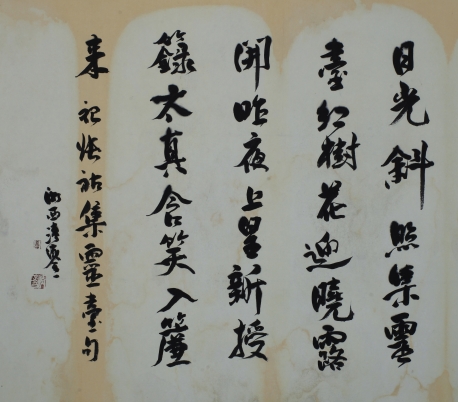 日光斜照集靈
臺紅樹花迎曉露
開昨夜上皇新授
籙太真含笑入簾
來 張祜集靈臺句